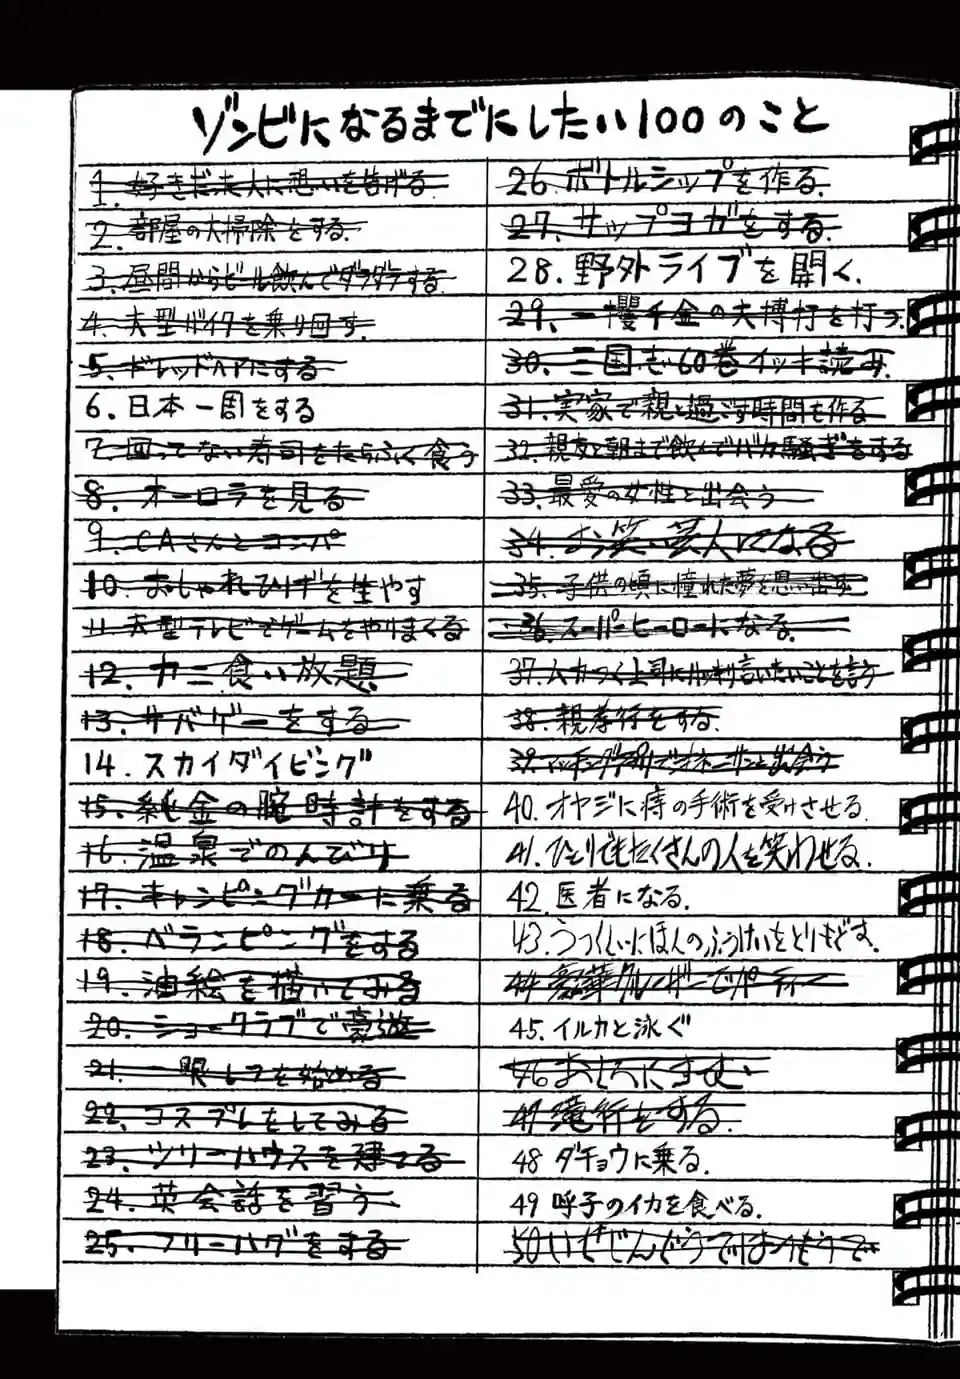 ゾンビになるまでにしたい100のこと
1. 好きだった人に想いを告げる
2. 部屋の大掃除をする.
3. 昼間からビール飲んでダラダラする
4. 大型バイクを乗り回す.
5. ドレッドヘアにする
6. 日本一周をする
7. 回ってない寿司をたらふく食う
8. オーロラを見る
9. CAさんとコンパ
10. おしゃれひげを生やす
11. 大型テレビでゲームをやりまくる
12. カニ食い放題
13. サバゲーをする
14. スカイダイビング
15. 純金の腕時計をする
16. 温泉でのんびり
17. キャンピングカーに乗る
18. ベランピングをする
19. 油絵を描いてみる
20. ショークラブで豪遊
21. 一眼レフを始める
22. コスプレをしてみる
23. ツリーハウスを建てる
24. 英会話を習う
25. フリーハグをする
26. ボトルシップを作る.
27. サップヨガをする.
28. 野外ライブを開く.
29. 一攫千金の大博打を打つ.
30. 三国志60巻イッキ読み.
31. 実家で親と過ごす時間を作る
32. 親友と朝まで飲んでバカ騒ぎをする
33. 最愛の女性と出会う
34. お笑い芸人になる
35. 子供の頃に憧れた夢を思い出す
36. スーパーヒーローになる.
37. ムカつく上司にハッキリ言いたいことを言う
38. 親孝行をする.
39. マッチングアプリでオネーサンと出会う
40. オヤジに痔の手術を受けさせる.
41. ひとりでもたくさんの人を笑わせる.
42. 医者になる.
43. うつくしいにほんのふうけいをとりもどす.
44 豪華クルーザーでパーティー
45. イルカと泳ぐ
46 おしろにすむ
47 滝行をする.
48 ダチョウに乗る.
49 呼子のイカを食べる.
50 いせじんぐうではつもうで